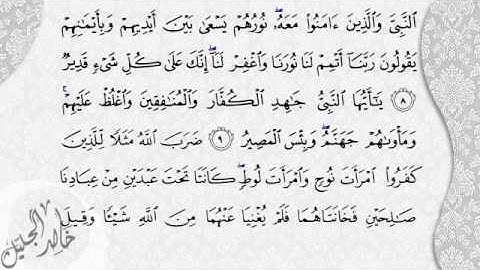 ٱلنَّبِىَّ وَٱلَّذِينَ ءَامَنُوا۟ مَعَهُۥ ۖ نُورُهُمْ يَسْعَىٰ بَيْنَ أَيْدِيهِمْ وَبِأَيْمَـٰنِهِمْ
يَقُولُونَ رَبَّنَآ أَتْمِمْ لَنَا نُورَنَا وَٱغْفِرْ لَنَآ ۖ إِنَّكَ عَلَىٰ كُلِّ شَىْءٍ قَدِيرٌ
٨ يَـٰٓأَيُّهَا ٱلنَّبِىُّ جَـٰهِدِ ٱلْكُفَّارَ وَٱلْمُنَـٰفِقِينَ وَٱغْلُظْ عَلَيْهِمْ ۚ
وَمَأْوَىٰهُمْ جَهَنَّمُ ۖ وَبِئْسَ ٱلْمَصِيرُ ٩ ضَرَبَ ٱللَّهُ مَثَلًا لِّلَّذِينَ
كَفَرُوا۟ ٱمْرَأَتَ نُوحٍ وَٱمْرَأَتَ لُوطٍ ۖ كَانَتَا تَحْتَ عَبْدَيْنِ مِنْ عِبَادِنَا
صَـٰلِحَيْنِ فَخَانَتَاهُمَا فَلَمْ يُغْنِيَا عَنْهُمَا مِنَ ٱللَّهِ شَيْـًٔا وَقِيلَ
خالد الجليل